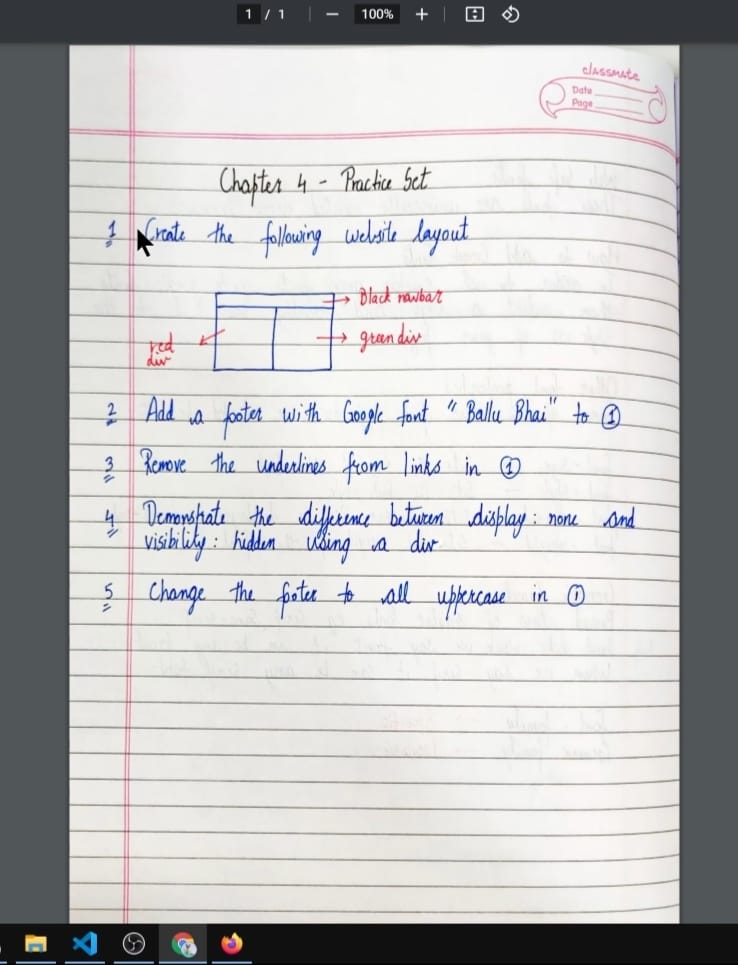 1 / 1 | — 100% + |
classmate
Date
Page
Chapter 4 - Practice Set
1 Create the following website layout
Black navbar
green div
red
div
2 Add a footer with Google font "Ballu Bhai" to ①
3 Remove the underlines from links in ①
4 Demonstrate the difference between display: none and
visibility: hidden using a div
5 Change the footer to all uppercase in ①